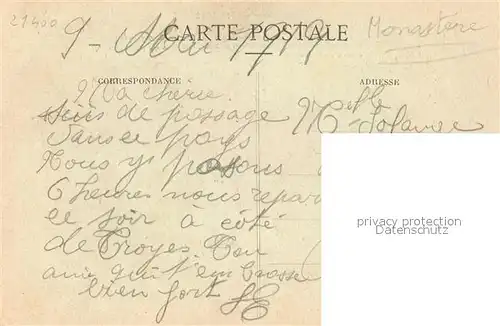 21400
9 - Mai 1919
Monastère
CARTE POSTALE
CORRESPONDANCE
ADRESSE
Ma chérie
suis de passage
Melle Solange
dans ce pays
Nous y passons
6 heures nous repar
ce soir à côté
de Troyes. Ton
amie qui t'embrasse
bien fort
privacy protection
Datenschutz